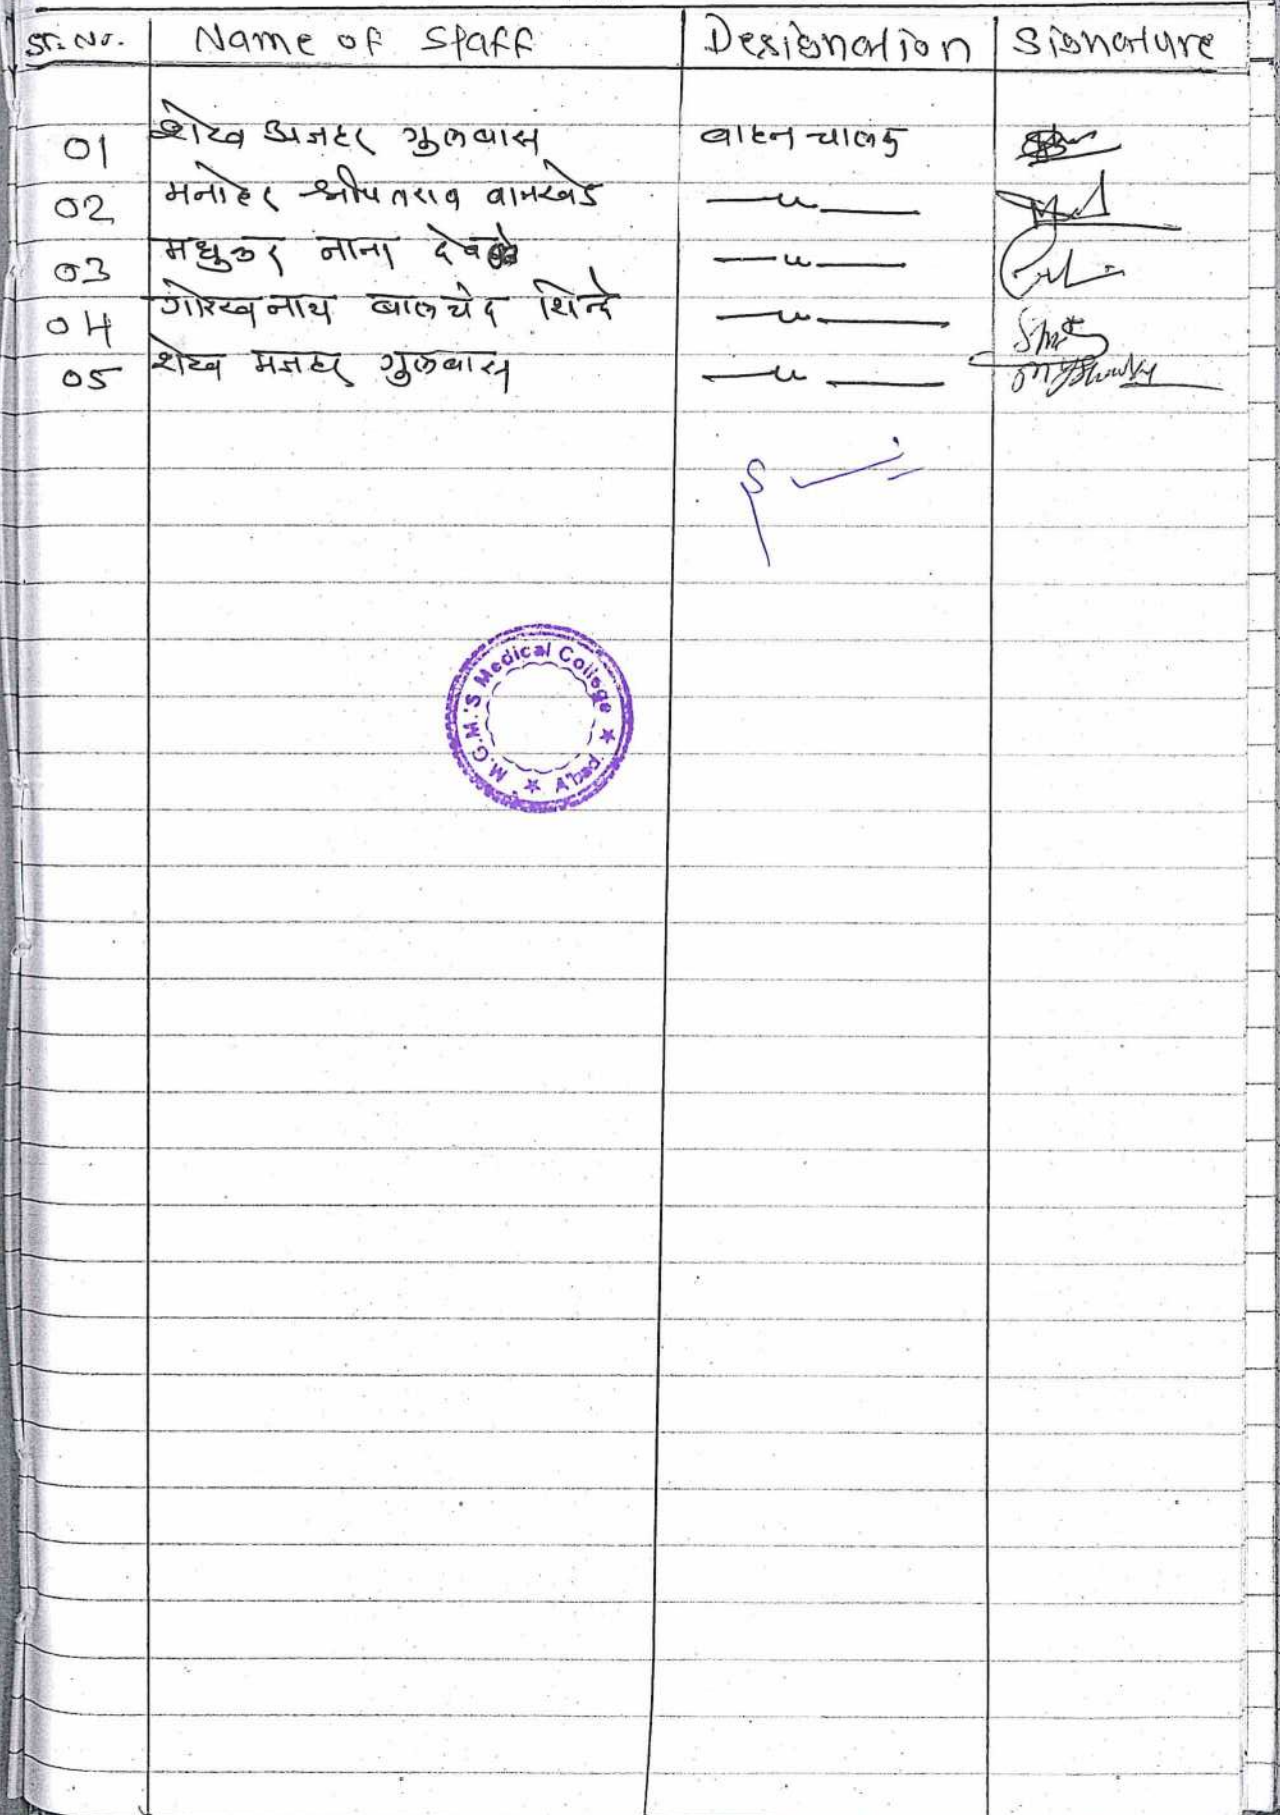 Sr. No. Name of Staff Designation Signature
01 शेख अजहर गुलबास वाहन चालक
02 मनोहर श्रीपतराव वानखेडे —〃—
03 मधुकर नाना —〃—
04 गोरखनाथ बालचंद शिन्दे —〃—
05 शेख मजहर गुलबास —〃—
M.G.M.'S Medical College ★ A'bad. ★